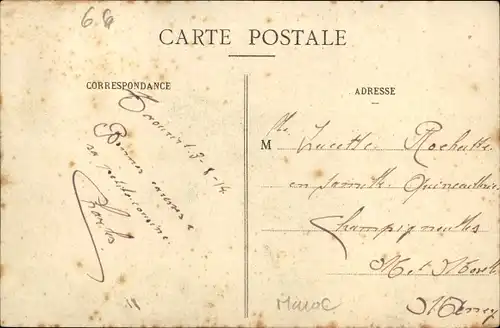 66
CARTE POSTALE
CORRESPONDANCE
ADRESSE
3-8-14
Bonnes
sa petite cousine
Charles
Mlle Lucette Rochatte
en famille Quincaillerie
Champigneulles
Met Moselle
Maroc